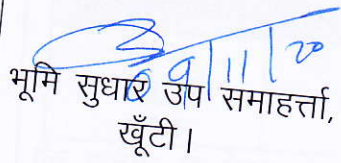 09/11/20
भूमि सुधार उप समाहर्त्ता,
खूँटी।